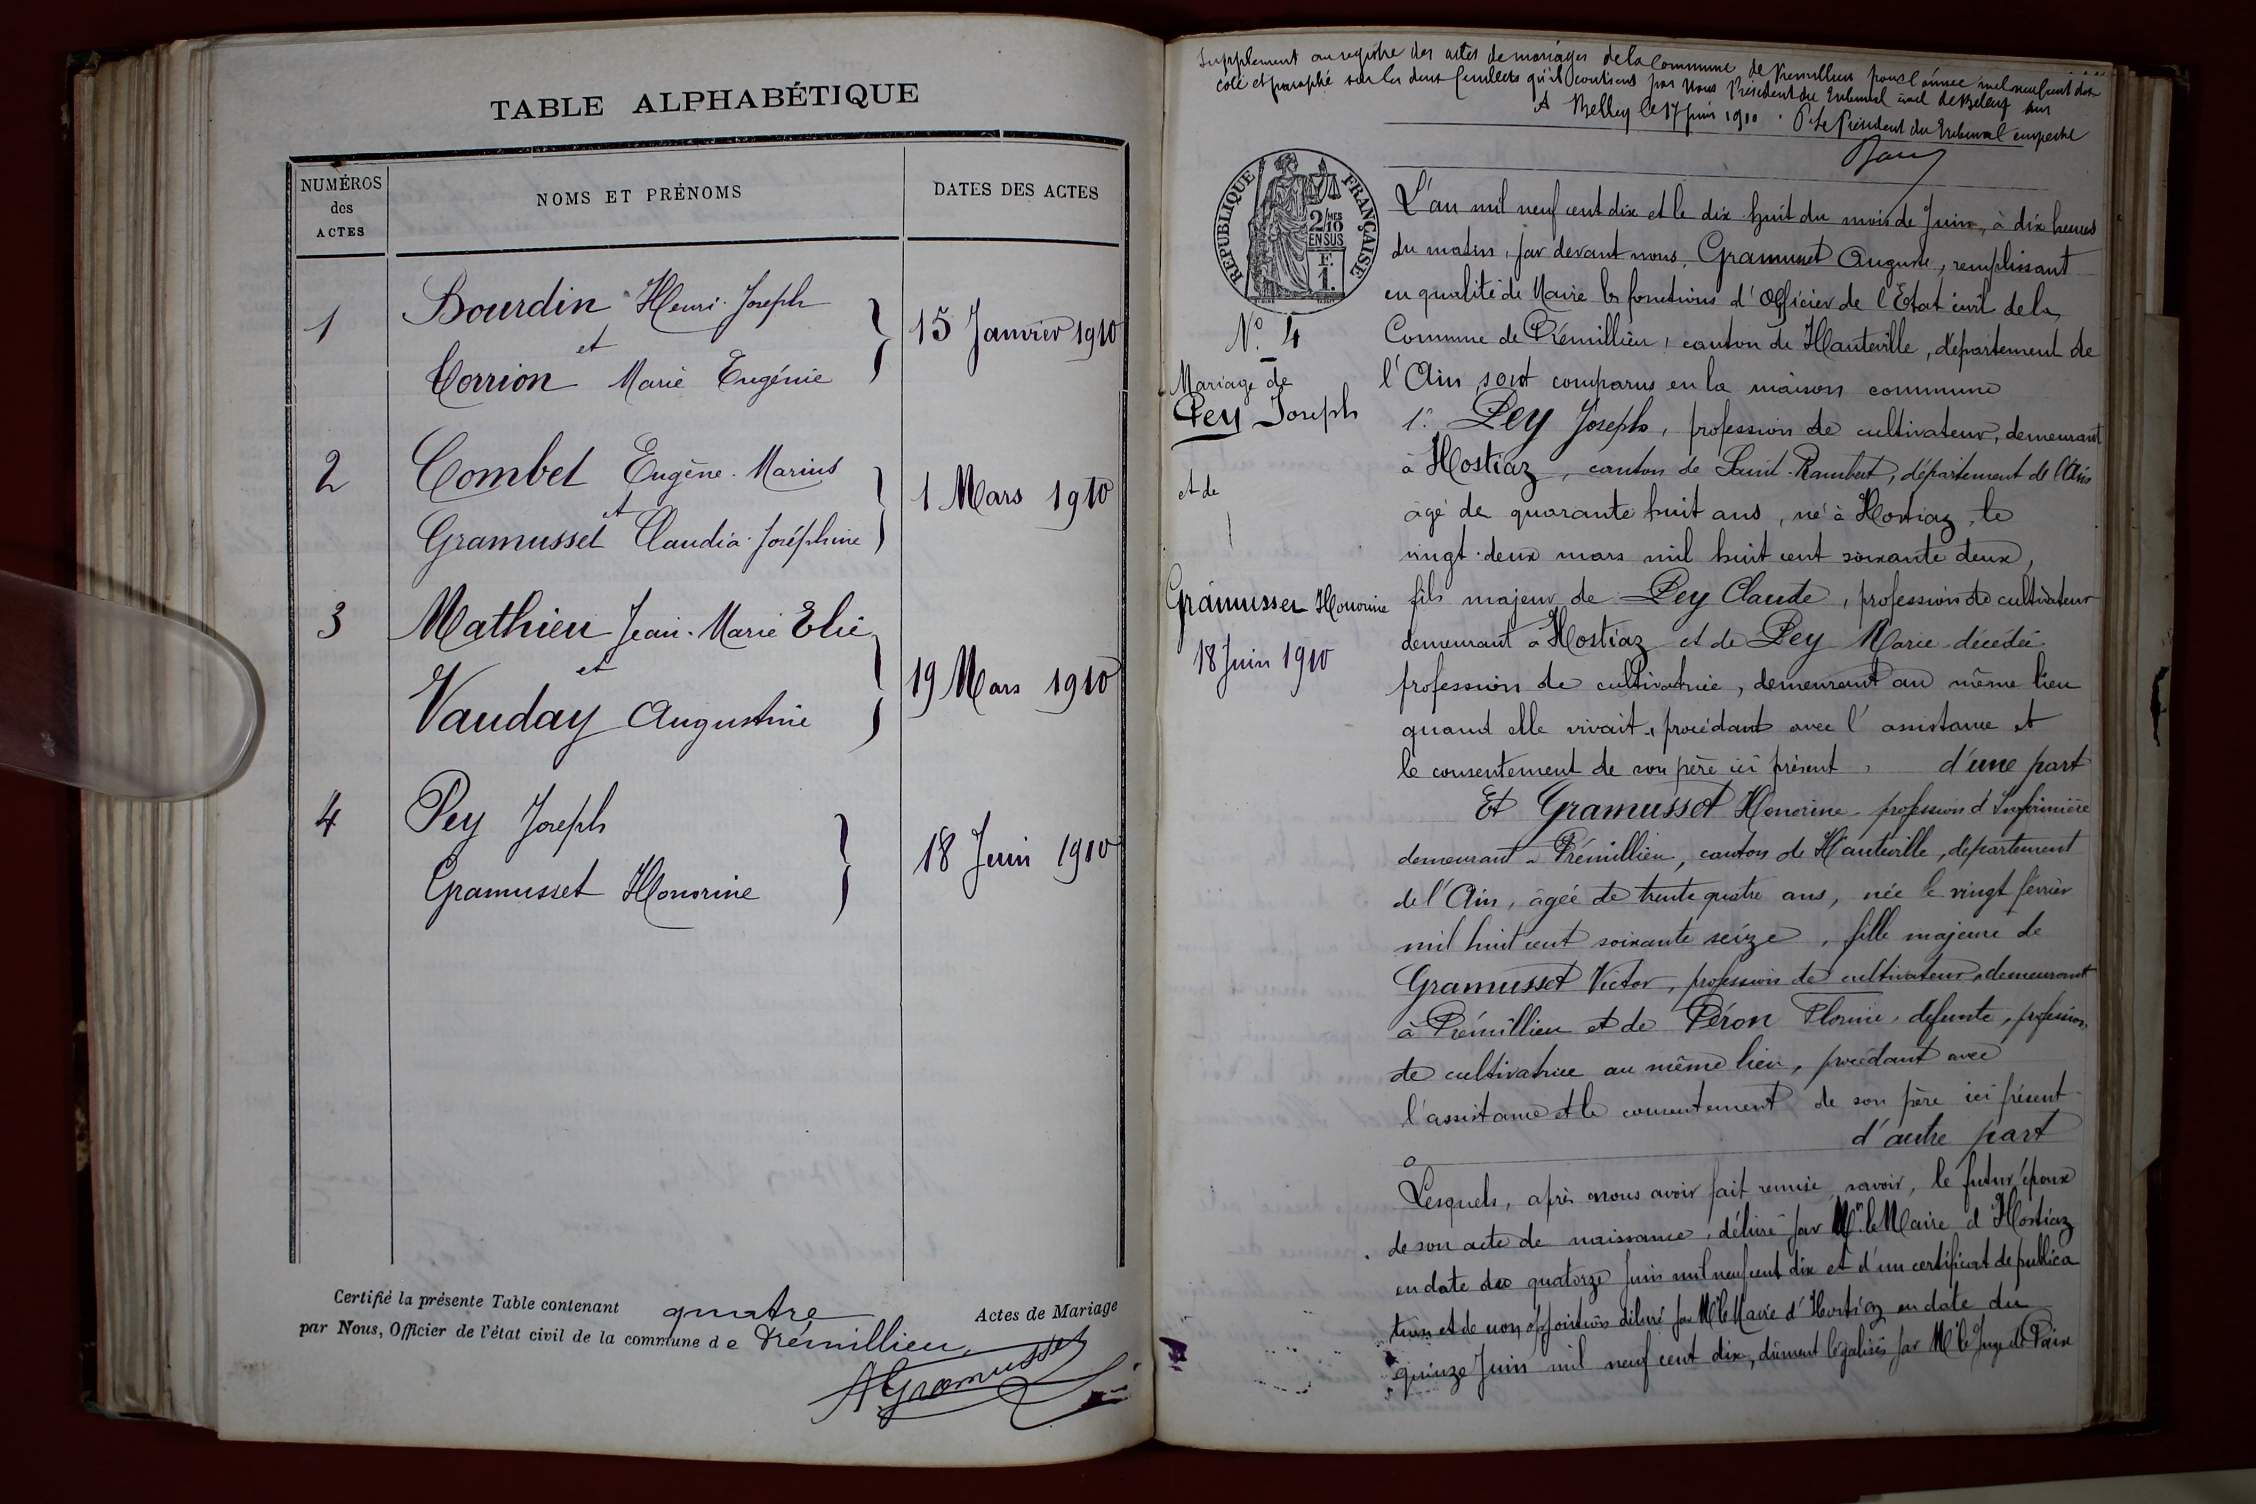 TABLE ALPHABÉTIQUE
NUMÉROS
des
ACTES
NOMS ET PRÉNOMS
DATES DES ACTES
1
Bourdin Henri Joseph
et
Corrion Marie Eugénie
15 Janvier 1910
2
Combet Eugène Marius
et
Gramusset Claudia Joséphine
1 Mars 1910
3
Mathieu Jean-Marie Elie
et
Vauday Augustine
19 Mars 1910
4
Pey Joseph
Gramusset Honorine
18 Juin 1910
Certifié la présente Table contenant quatre Actes de Mariage
par Nous, Officier de l'état civil de la commune de Prémillieu,
A Gramusset
Supplement au registre des actes de mariages de la Commune de Premillieu pour l'année mil neuf cent dix
coté et paraphé sur les deux feuillets qu'il contient par Nous Président du Tribunal civil de Belley
A Belley le 17 Juin 1910. P. Le Président du Tribunal empeché
RÉPUBLIQUE FRANÇAISE
2/10 MES
EN SUS
F.
1.
L'an mil neuf cent dix et le dix huit du mois de Juin, à dix heures
du matin, par devant nous, Gramusset Auguste, remplissant
en qualité de Maire les fonctions d'Officier de l'Etat civil de la
Commune de Prémillieu, canton de Hauteville, département de
l'Ain sont comparus en la maison commune
N° 4
Mariage de
Pey Joseph
et de
Gramusset Honorine
18 Juin 1910
1° Pey Joseph, profession de cultivateur, demeurant
à Hostiaz, canton de Saint-Rambert, département de l'Ain
âgé de quarante huit ans, né à Hostiaz, le
vingt-deux mars mil huit cent soixante deux,
fils majeur de Pey Claude, profession de cultivateur
demeurant à Hostiaz et de Pey Marie décédée
profession de cultivatrice, demeurant au même lieu
quand elle vivait, procédant avec l'assistance et
le consentement de son père ici présent, d'une part
Et Gramusset Honorine profession d'Infirmière
demeurant à Prémillieu, canton de Hauteville, département
de l'Ain, âgée de trente quatre ans, née le vingt février
mil huit cent soixante seize, fille majeure de
Gramusset Victor, profession de cultivateur, demeurant
à Prémillieu et de Péron Florine, défunte, profession
de cultivatrice au même lieu, procédant avec
l'assistance et le consentement de son père ici présent
d'autre part
Lesquels, après nous avoir fait remise savoir, le futur époux
de son acte de naissance, délivré par Mr le Maire d'Hostiaz
en date du quatorze Juin mil neuf cent dix et d'un certificat de publica
tion et de non opposition délivré par Mr le Maire d'Hostiaz en date du
quinze Juin mil neuf cent dix, dûment légalisés par Mr le Juge de Paix